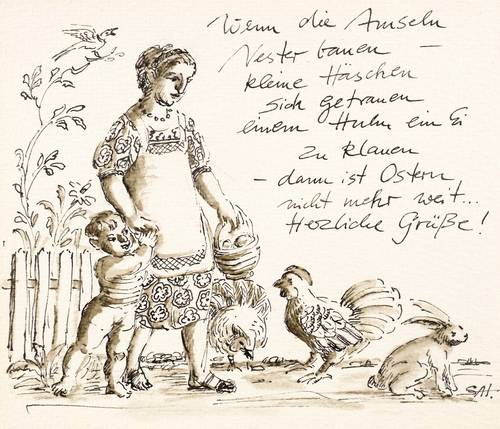 Wenn die Amseln
Nester bauen –
kleine Häschen
sich getrauen
einem Huhn ein Ei
zu klauen
– dann ist Ostern
nicht mehr weit...
Herzliche Grüße!
SAH.